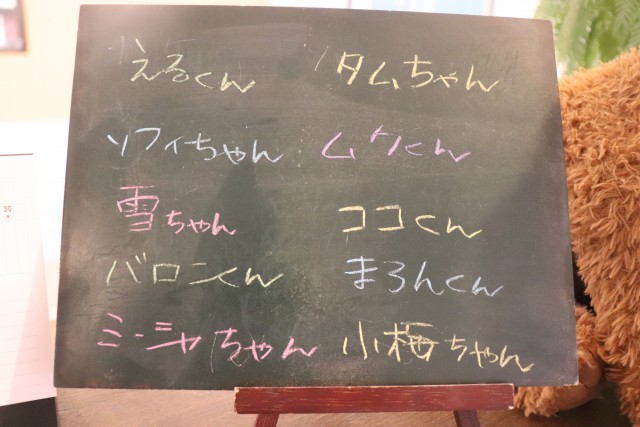 えるくん タムちゃん
ソフィちゃん ムクくん
雪ちゃん ココくん
バロンくん まろんくん
ミーシャちゃん 小梅ちゃん
30
木